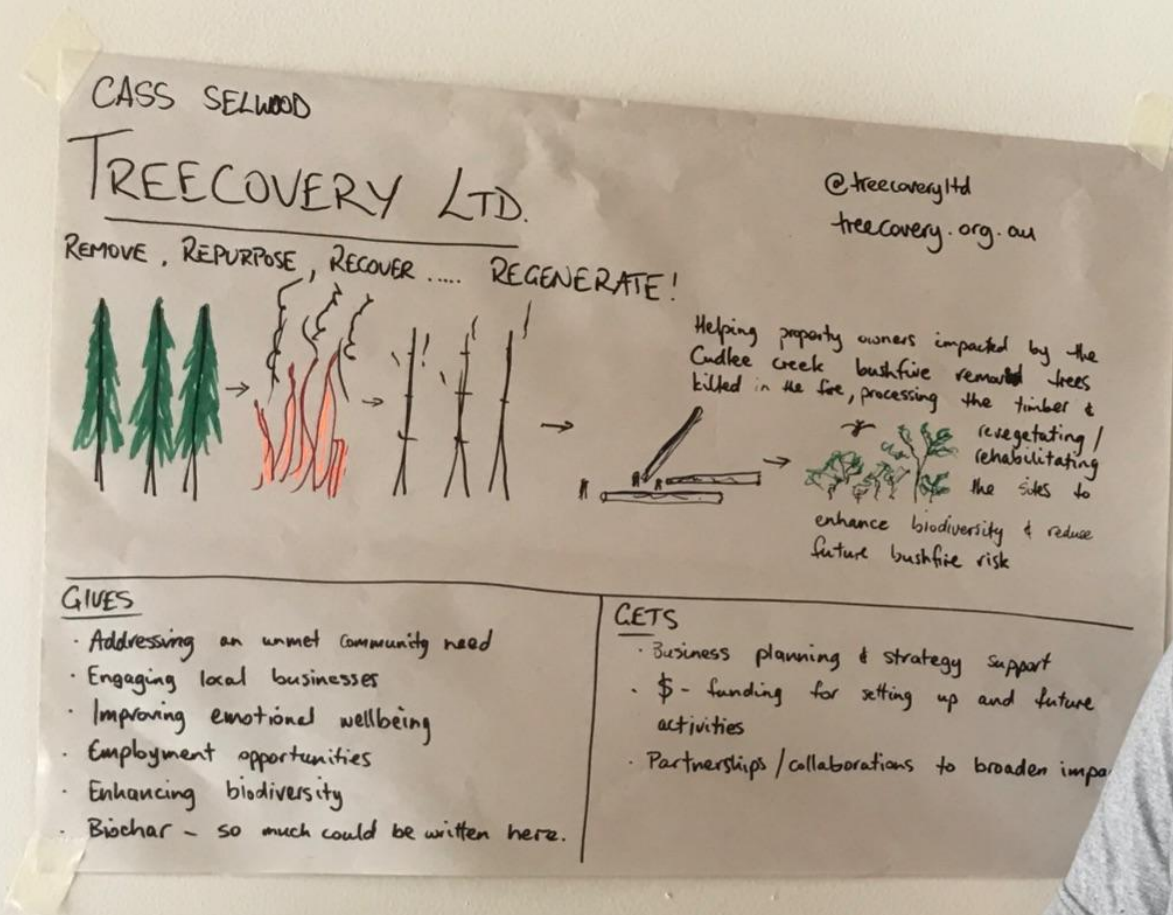 CASS SELWOOD
TREECOVERY LTD.
@treecoveryltd
treecovery.org.au
REMOVE, REPURPOSE, RECOVER..... REGENERATE!
Helping property owners impacted by the
Cudlee Creek bushfire remove trees
killed in the fire, processing the timber &
revegetating/
rehabilitating
the sites to
enhance biodiversity & reduce
future bushfire risk
GIVES
· Addressing an unmet community need
· Engaging local businesses
· Improving emotional wellbeing
· Employment opportunities
· Enhancing biodiversity
· Biochar - so much could be written here.
GETS
· Business planning & strategy support
· $ - funding for setting up and future
activities
· Partnerships/collaborations to broaden impa